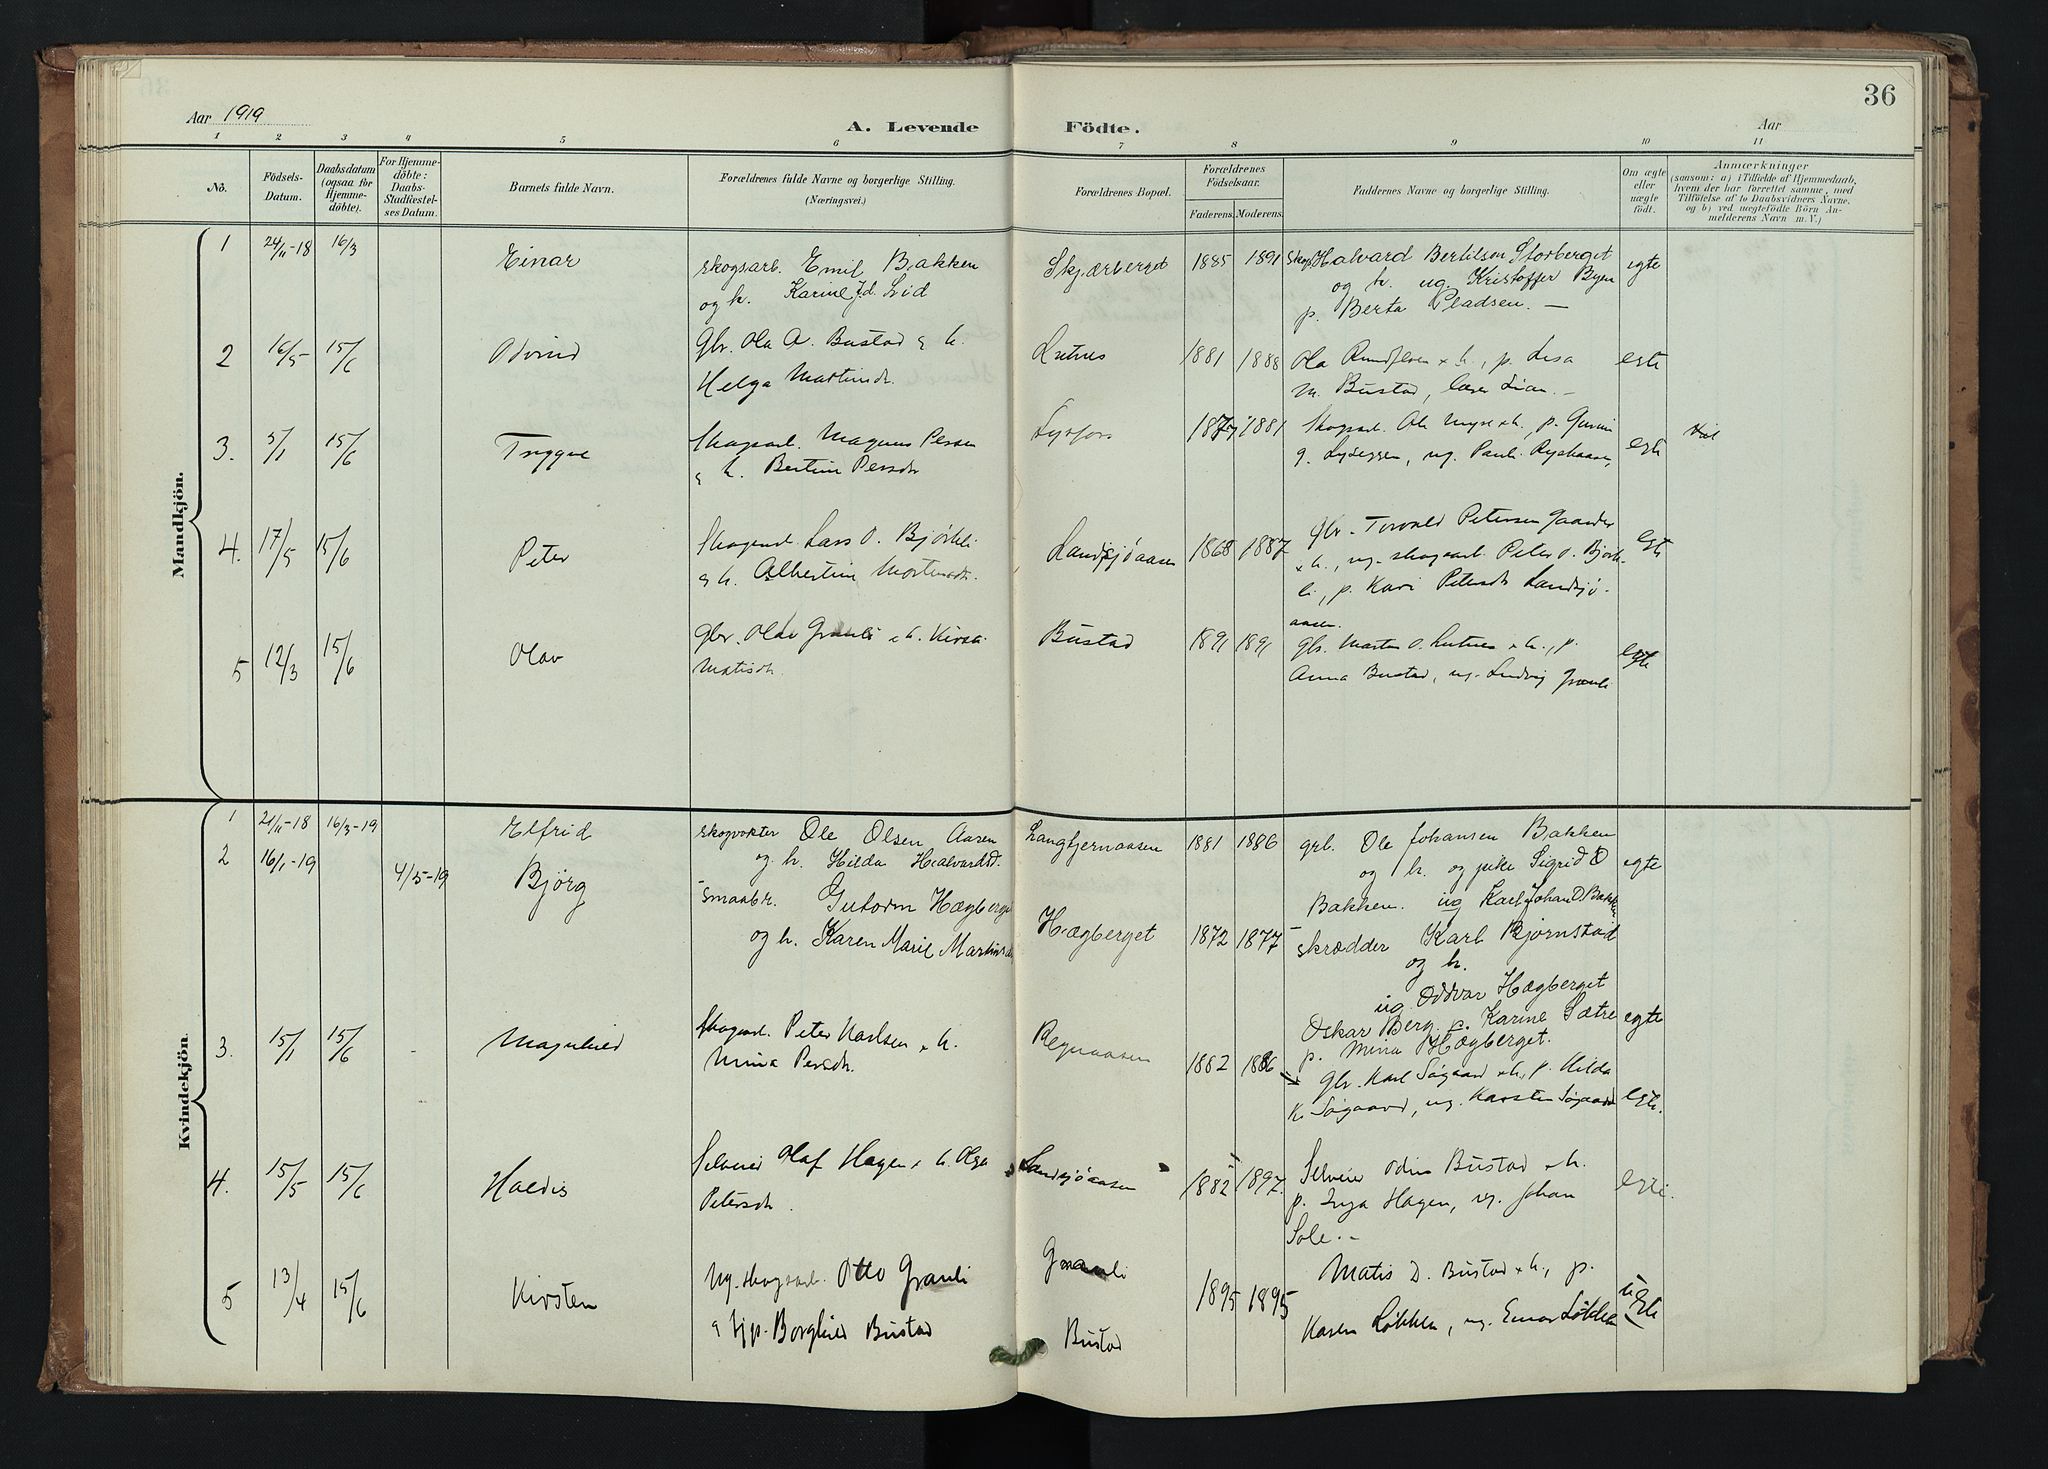 36
Aar 1919
A. Levende Födte.
Aar
1 2 3 4 5 6 7 8 9 10 11
No.
Födsels-Datum.
Daabsdatum (ogsaa for Hjemme-döbte).
For Hjemme-döbte: Daabs-Stadfæstel-ses Datum.
Barnets fulde Navn.
Forældrenes fulde Navne og borgerlige Stilling.
(Næringsvei.)
Forældrenes Bopæl.
Forældrenes Födselsaar.
Faderens. Moderens.
Faddernes Navne og borgerlige Stilling.
Om ægte eller uægte födt.
Anmærkninger
(saasom: a) i Tilfælde af Hjemmedaab, hvem der har forrettet samme, med Tilföielse af to Daabsvidners Navne, og b) ved uægtefödte Börn An-melderens Navn m. V.)
Mandkjön.
1 24/11-18 16/3 Einar
skogsarb. Emil Bakken
og h. Karine Jd. Lid
Skjærberget 1885 1891
Halvard Bertilsen Storberget
og h. ug. Kristoffer Byen
p. Berta Pladsen. —
egte
2 16/5 15/6 Odvind
Gbr. Ola A. Bustad & h.
Helga Martinsdr.
Lutnes 1881 1888
Ola Rundfloen + h., p. Lisa
M. Bustad, lærer Lian. -
egte
3. 5/1 15/6 Trygve
Skogsarb. Magnus Persen
& h. Bertine Persdr.
1881
Skogsarb. Ole Myre + h., p.
egte
4. 17/5 15/6 Peter
Skogsarb. Lars O. Bjørkli
& h. Albertine Mortensdr.
Landsjøaasen 1868 1887
gbr. Torvald Petersen
+ h., ug. skogsarb. Peter O. Bjørk-
li, p. Kari Petersdr. Landsjø-
aasen.
egte
5 12/3 15/6 Olav
Gbr. Granli + h.
Matisdr.
Bustad 1891 1891
gbr. Morten O. Lutnes + h., p.
Anna Bustad, ug. Ludvig Granli
egte
Kvindekjön.
1 21/11-18 16/3-19 Elfrid
skogvokter Ole Olsen Aasen
og h. Hilda Halvardsd.
Langtjernaasen 1881 1886
grb. Ole Johansen Bakken
og h. og pike Sigrid O
Bakken. ug Karl Johan O. Bakken
egte
2 16/1-19 4/5-19 Bjørg
smaabr. Gutorm Hægberget
og h. Karen Marie Martinsdr.
Hægberget 1872 1877
skrædder Karl Bjørnstad
og h.
ug Oddvar Hægberget
Oskar Berg p. Karine Sætre
p. Mina Hægberget.
egte
3. 15/1 15/6 Magnhild
Skogsarb. Peter Karlsen + h.
Mina Persdr.
Regnaasen 1882 1886
Gbr. Karl Søgaard + h., p. Hilda
K. Søgaard, ug. Karsten Søgaard
egte.
4. 15/5 15/6 Haldis
Selveier Olaf Hagen + h. Olga
Petersdr.
Landsjøaasen 1882 1897
Selveier Odin Bustad + h.
p. Inga Hagen, ug. Johan
Sole. -
egte.
5 13/4 15/6 Kirsten
Ug. skogsarb. Otto Granli
& tjp. Borghild Bustad
Granli
Bustad
1895 1895
Matis D. Bustad + h., p.
Karen Løkken, ug. Einar Løkken
uegte